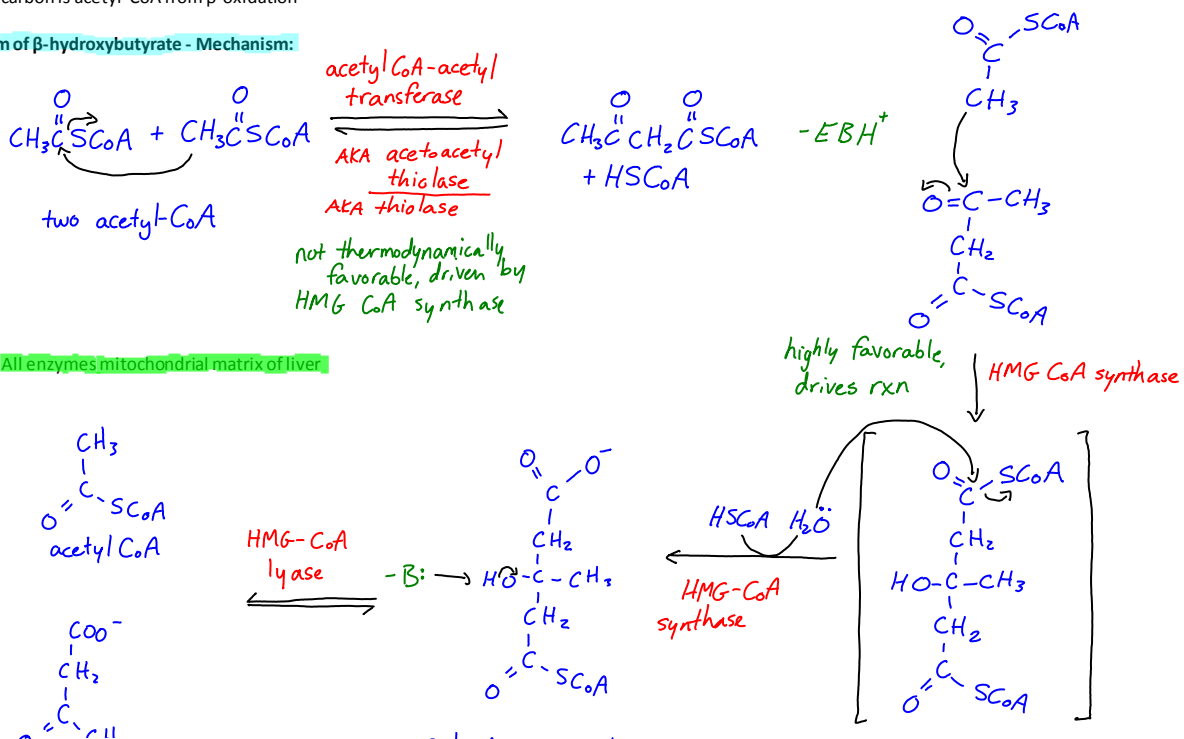 carbon is acetyl-CoA from β-oxidation
m of β-hydroxybutyrate - Mechanism:
O O
CH₃CSCoA + CH₃CSCoA
two acetyl-CoA
acetyl CoA-acetyl
transferase
AKA acetoacetyl
thiolase
AKA thiolase
not thermodynamically
favorable, driven by
HMG CoA synthase
O O
CH₃CCH₂CSCoA
+ HSCoA
-EBH⁺
O=C-SCoA
CH₃
O=C-CH₃
CH₂
C-SCoA
O
highly favorable,
drives rxn
HMG CoA synthase
All enzymes mitochondrial matrix of liver
O=C-SCoA
CH₂
HO-C-CH₃
CH₂
C-SCoA
O
HSCoA H₂Ö
HMG-CoA
synthase
O O⁻
C
CH₂
-B: HO-C-CH₃
CH₂
C-SCoA
O
HMG-CoA
lyase
CH₃
C-SCoA
O
acetyl CoA
COO⁻
CH₂
C